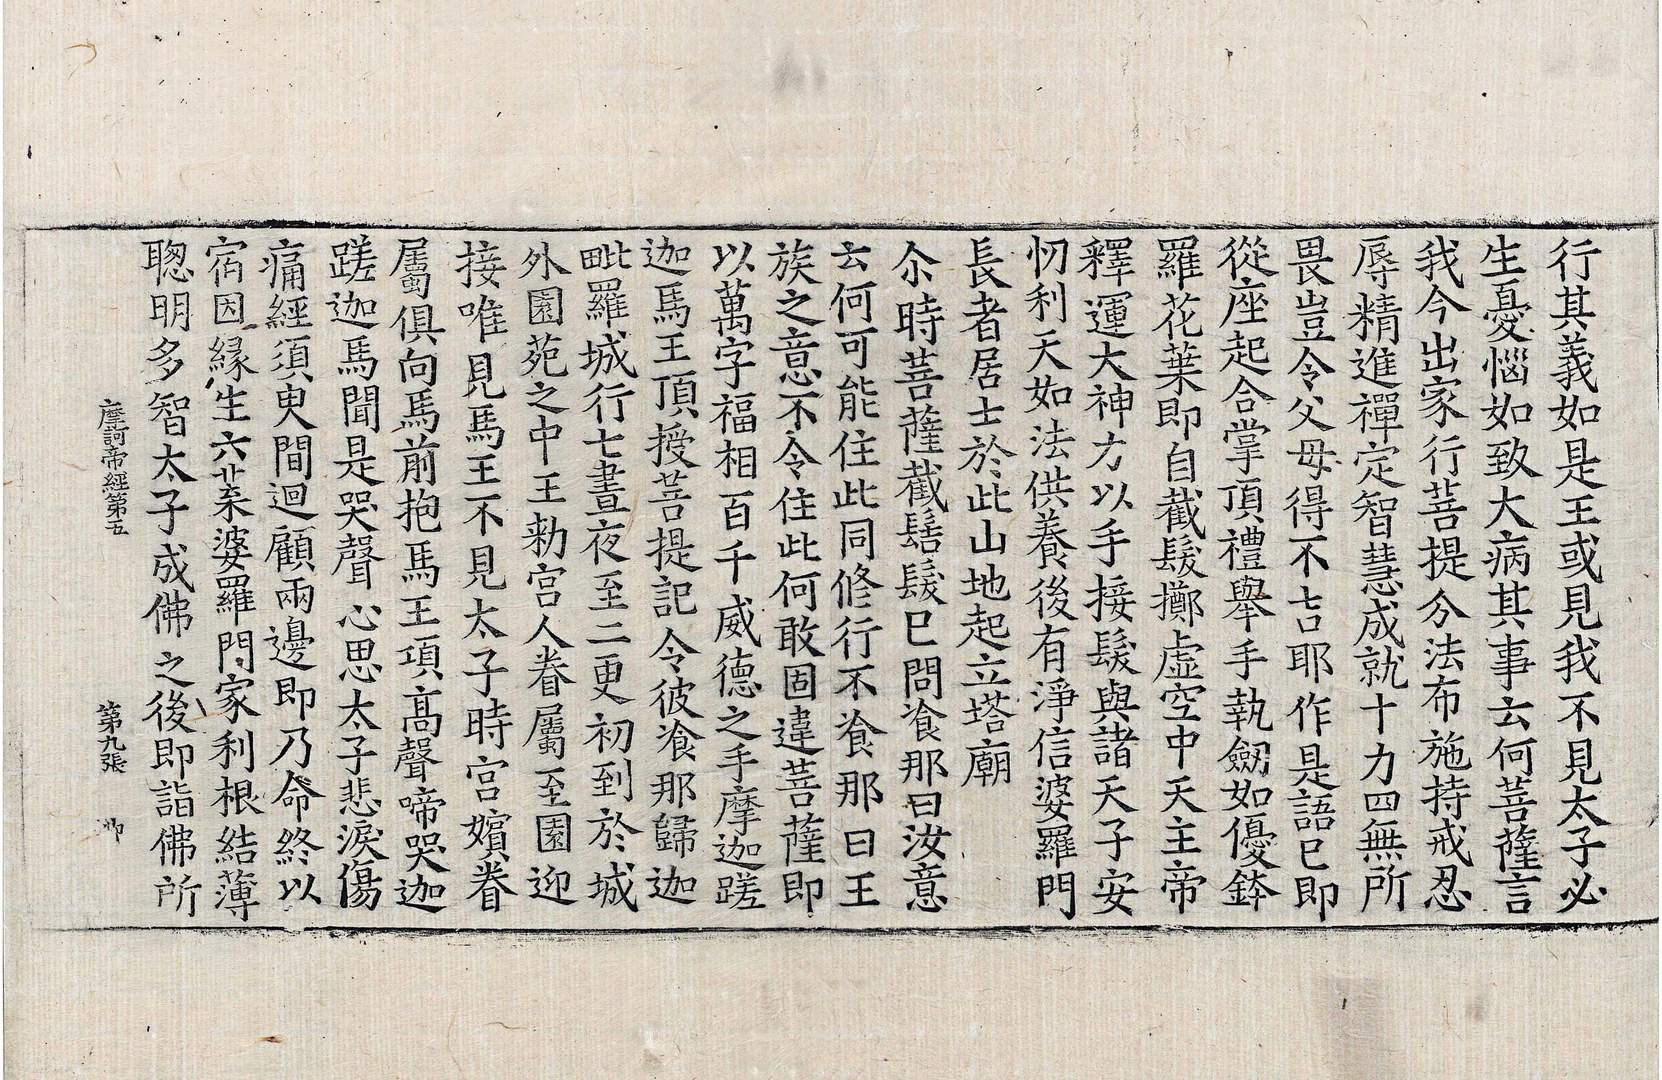 行其義如是王或見我不見太子必
生憂惱如致大病其事云何菩薩言
我今出家行菩提分法布施持戒忍
辱精進禪定智慧成就十力四無所
畏豈令父母得不吉耶作是語已即
從座起合掌頂禮舉手執劒如優鉢
羅花葉即自截髮擲虛空中天主帝
釋運大神力以手接髮與諸天子安
忉利天如法供養後有淨信婆羅門
長者居士於此山地起立塔廟
尒時菩薩截髻髮已問飡那曰汝意
云何可能住此同修行不飡那曰王
族之意不令住此何敢固違菩薩即
以萬字福相百千威德之手摩迦蹉
迦馬王頂授菩提記令彼飡那歸迦
毗羅城行七晝夜至二更初到於城
外園苑之中王勑宮人眷屬至園迎
接唯見馬王不見太子時宮嬪眷
屬俱向馬前抱馬王項高聲啼哭迦
蹉迦馬聞是哭聲心思太子悲淚傷
痛經須臾間迴顧兩邊即乃命終以
宿因緣生六業婆羅門家利根結薄
聰明多智太子成佛之後即詣佛所
摩訶帝經第五 第九張